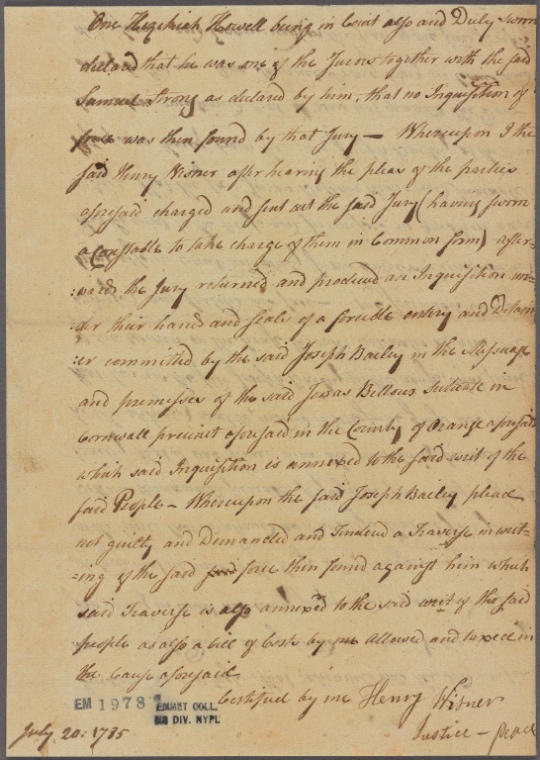 One Hezekiah Howell being in Court also and Duly sworn
declared that he was one of the Jurors together with the said
Samuel Strong as declared by him, that no Inquisition of
force was then found by that Jury — Whereupon I the
said Henry Wisner after hearing the pleas of the parties
aforesaid charged and sent out the said Jury (having sworn
a Constable to take charge of them in Common form) after-
:wards the Jury returned and produced an Inquisition un-
:der their hands and seals of a forcible entery and Detain
:er committed by the said Joseph Bailey in the Messuage
and premisses of the said Bellows Scituate in
Cornwall precinct aforesaid in the County of Orange aforesaid
which said Inquisition is annexed to the said writ of the
said People – Whereupon the said Joseph Bailey plead
not guilty and Demanded and Tendred a Traverse in writ-
:ing of the said force then found against him which
said Traverse is also annexed to the said writ of the said
people as also a bill of Costs by me allowed and taxed in
the Cause aforesaid
Certified by me Henry Wisner
Justice – peace
EM 1978
EMMET COLL.
MS DIV. NYPL
July 20: 1785